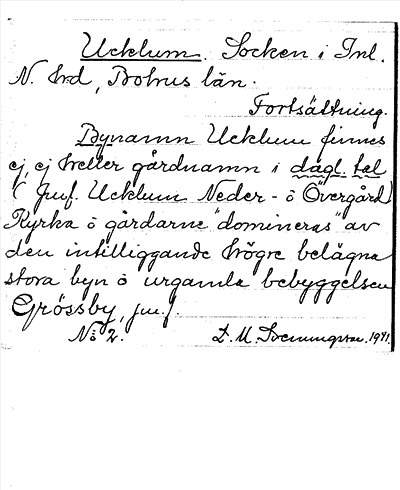 Ucklum. Socken i Inl.
N. hrd, Bohus län.
Fortsättning.
Bynamn Ucklum finnes
ej, ej heller gårdnamn i dagl. tal
(Jmf. Ucklum Neder- o Övergård)
Kyrka o gårdarne "domineras" av
den intilliggande högre belägna
stora byn o urgamla bebyggelsen
Grössby, jmf.
No 2. D. M. Svenungsson. 1941.